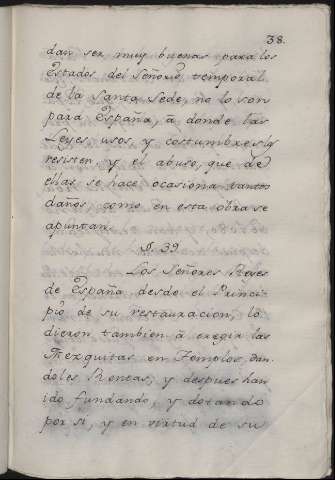 38.
dan ser muy buenas para los
Estados del Señorio temporal
de la Santa Sede, no lo son
para España, à donde las
Leyes, usos, y costumbres
resisten, y el abuso, que de
ellas se hace ocasiona tantos
daños, como en esta obra se
apuntan.
§. 39
Los Señores Reyes
de España desde el Princi-
pio de su restauracion,
dieron tambien à eregir las
Mezquitas en Templos, Dan-
doles Rentas, y despues han
ido fundando, y dotando
por si, y en virtud de su